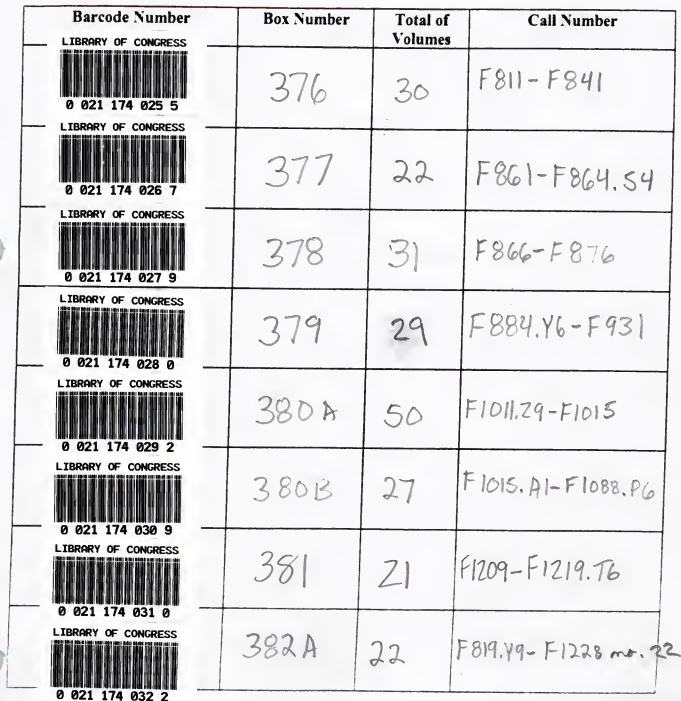 Barcode Number Box Number Total of Volumes Call Number
LIBRARY OF CONGRESS
0 021 174 025 5 376 30 F811-F841
LIBRARY OF CONGRESS
0 021 174 026 7 377 22 F861-F864.S4
LIBRARY OF CONGRESS
0 021 174 027 9 378 31 F866-F876
LIBRARY OF CONGRESS
0 021 174 028 0 379 29 F884.Y6-F931
LIBRARY OF CONGRESS
0 021 174 029 2 380A 50 F1011.Z9-F1015
LIBRARY OF CONGRESS
0 021 174 030 9 380B 27 F1015.A1-F1088.P6
LIBRARY OF CONGRESS
0 021 174 031 0 381 21 F1209-F1219.T6
LIBRARY OF CONGRESS
0 021 174 032 2 382A 22 F819.Y9-F1228 22